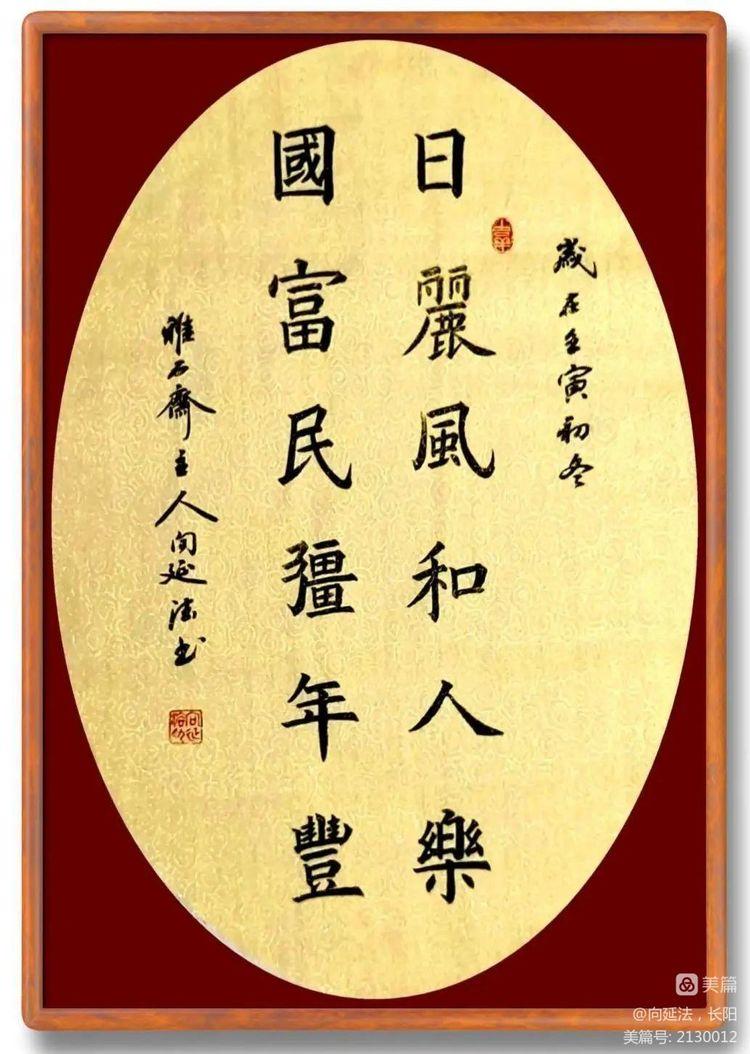 歲在壬寅初冬
日麗風和人樂
國富民彊年豐
雅石齋主人向延法书
美篇
@向延法，长阳
美篇号: 2130012